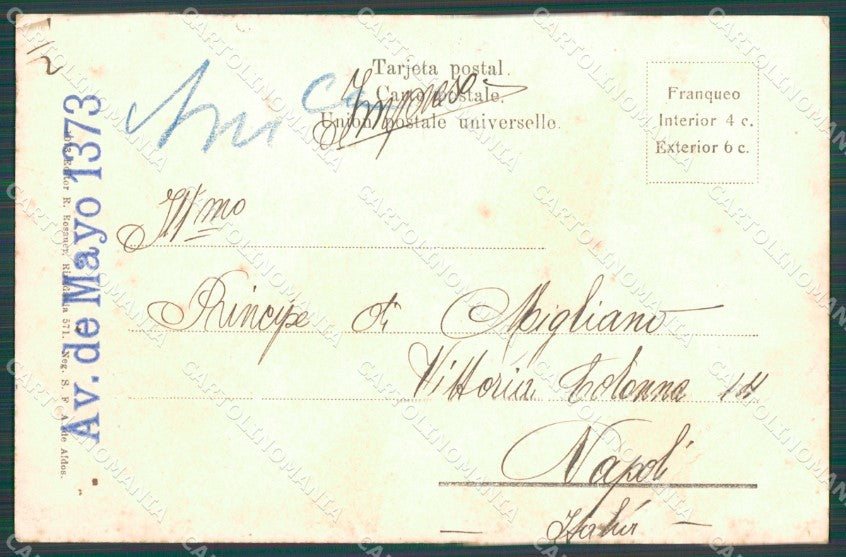 Tarjeta postal.
Carte postale.
Union postale universelle.
Franqueo
Interior 4 c.
Exterior 6 c.
Av. de Mayo 1373
Editor R. Rosauer, 571. Neg. S. F. A. de Aldos.
Ill mo
Principe di Migliano
Vittoria Colonna 14
Napoli
Italia
CARTOLINOMANIA